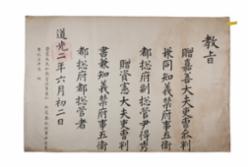 教旨
贈嘉善大夫吏曹叅判
兼同知義禁府事五衛
都摠府副摠管尹得
贈資憲大夫吏曹判
書兼知義禁府事五衛
都摠府都摠管者
道光二年六月初二日